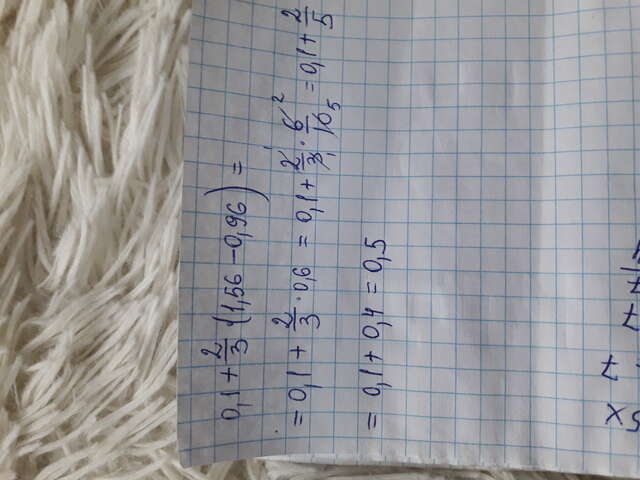 0,1 + 2/3 · (1,56 − 0,96) =
= 0,1 + 2/3 · 0,6 = 0,1 + 2/3 · 6/10 = 0,1 + 2/5
= 0,1 + 0,4 = 0,5